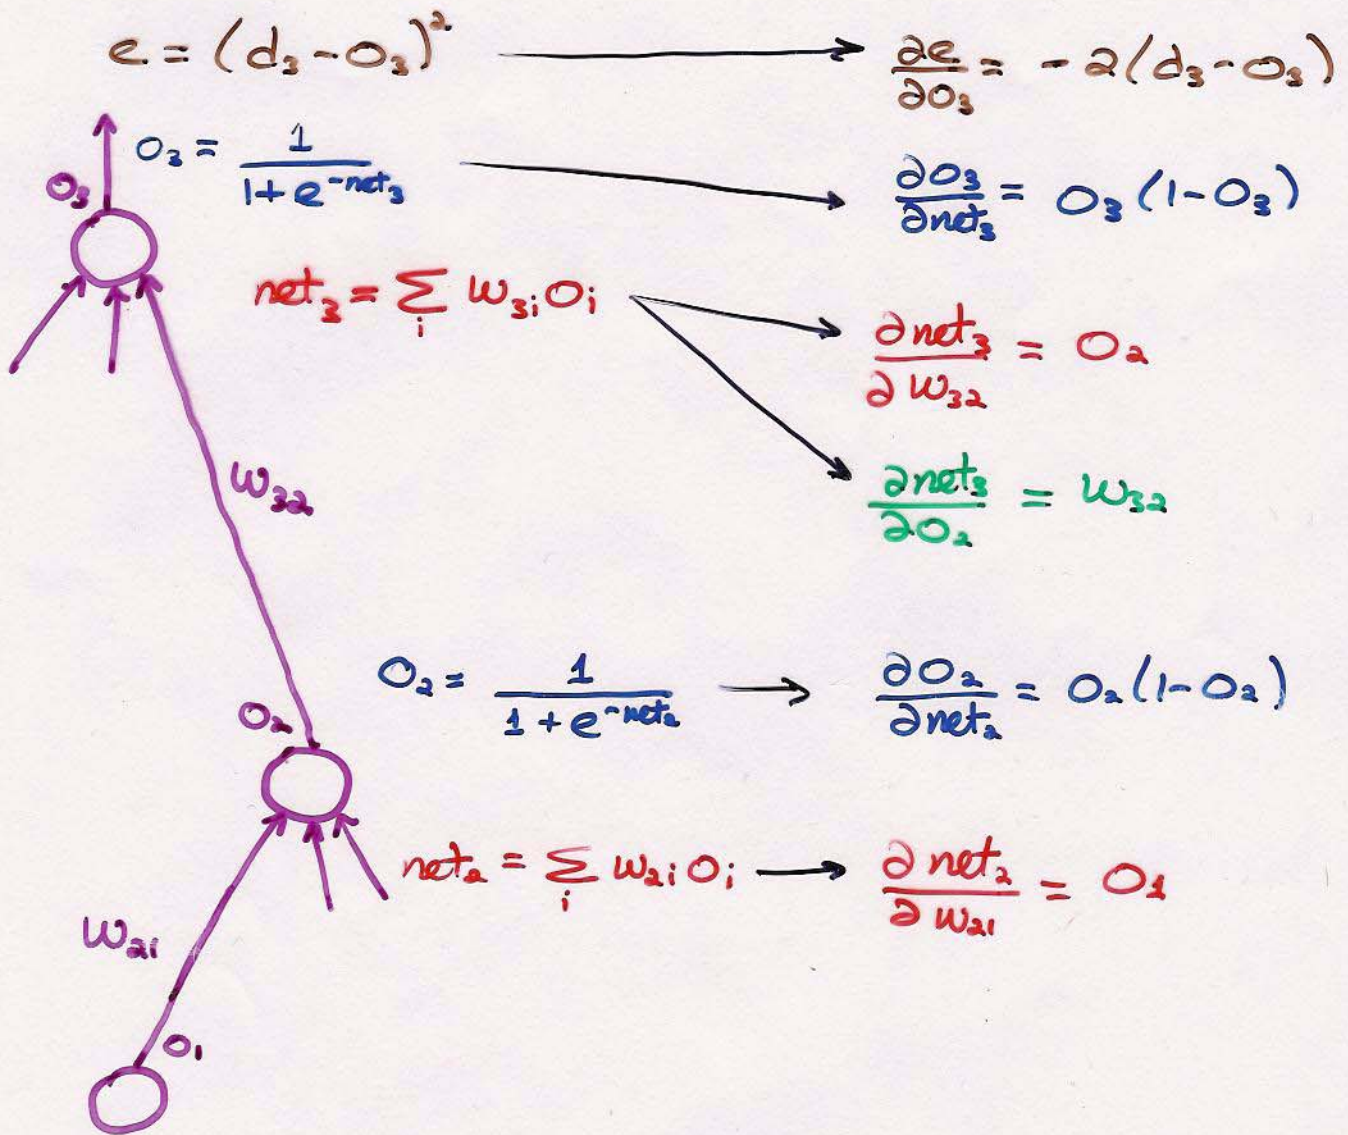 e = (d₃ - O₃)² → ∂e/∂O₃ = -2(d₃ - O₃)
O₃ = 1/(1 + e^(-net₃)) → ∂O₃/∂net₃ = O₃(1 - O₃)
O₃
net₃ = Σᵢ w₃ᵢ Oᵢ → ∂net₃/∂w₃₂ = O₂
w₃₂
∂net₃/∂O₂ = w₃₂
O₂ = 1/(1 + e^(-net₂)) → ∂O₂/∂net₂ = O₂(1 - O₂)
O₂
net₂ = Σᵢ w₂ᵢ Oᵢ → ∂net₂/∂w₂₁ = O₁
w₂₁
O₁